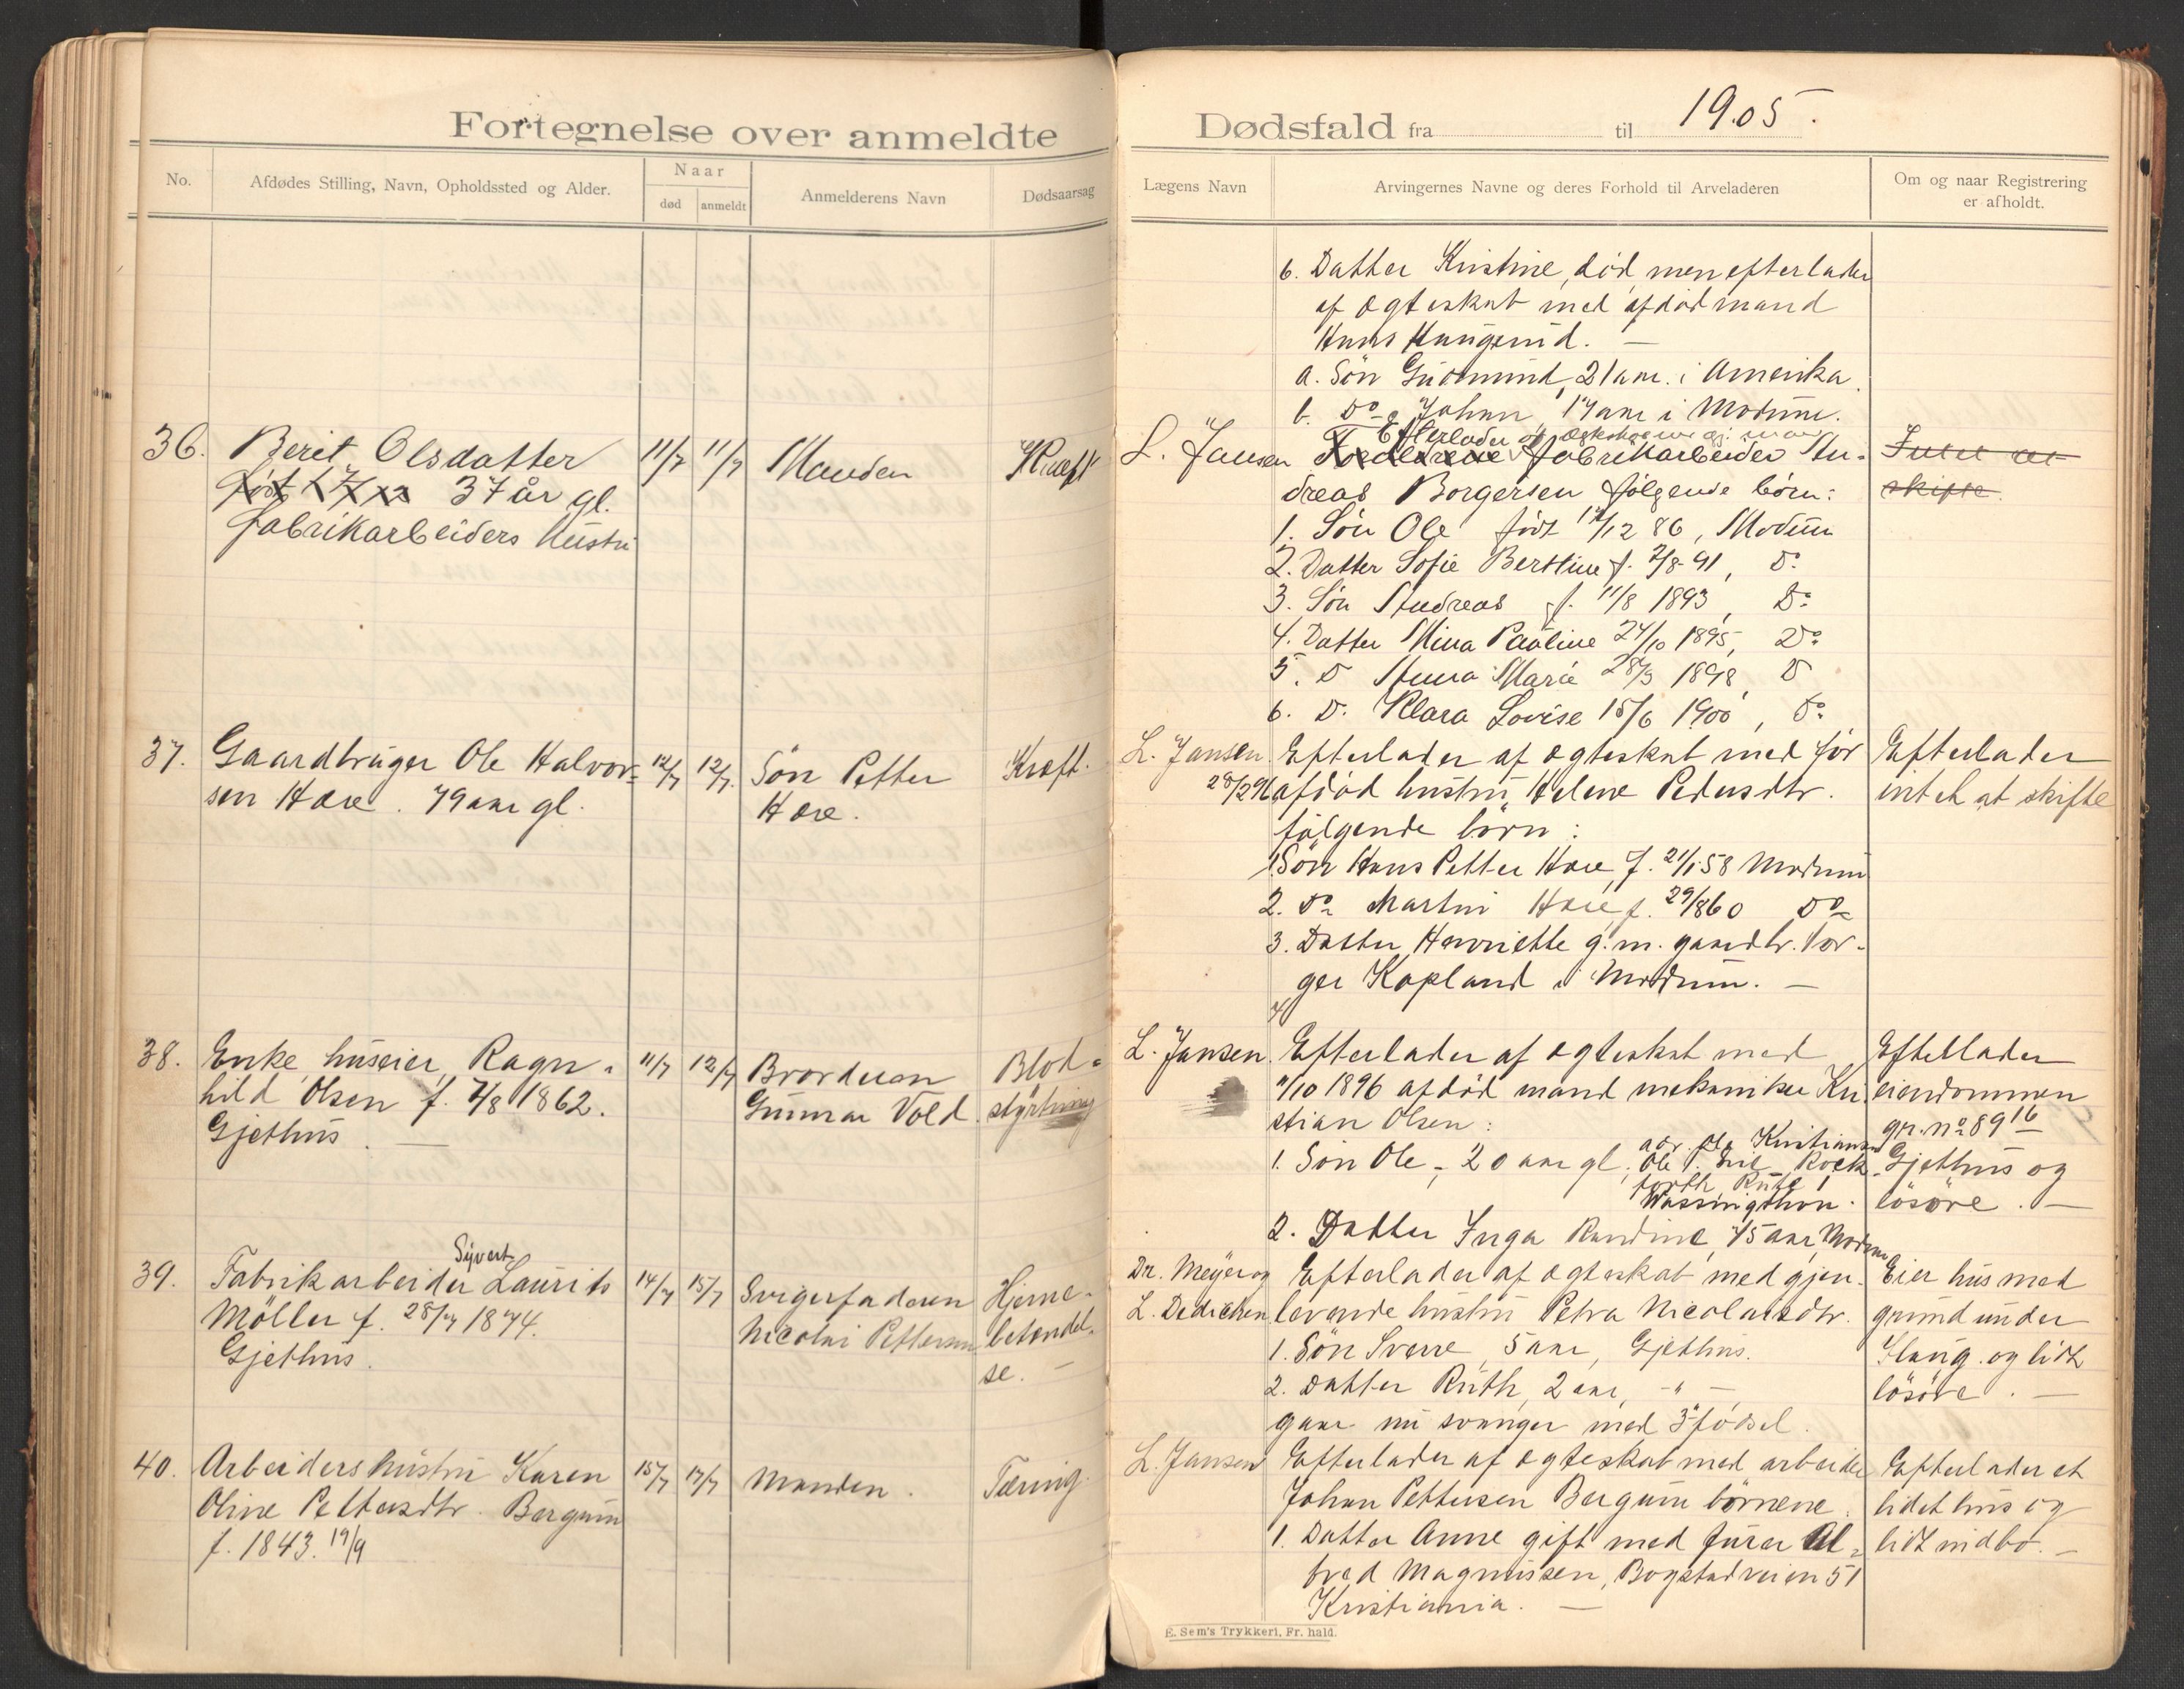 Fortegnelse over anmeldte
No.
Afdødes Stilling, Navn, Opholdssted og Alder.
Naar
død
anmeldt
Anmelderens Navn
Dødsaarsag
36.
Berit Olsdatter
født 37 år gl.
fabrikarbeiders hustru
11/7
11/7
Manden
Kræft
37.
Gaardbruger Ole Halvor-
sen Hære. 79 aar gl.
12/7
12/7.
Søn Petter
Hære.
Kræft.
38.
Enke, huseier, Ragn-
hild Olsen f. 7/8 1862.
Gjethus. —
11/7
12/7
Broderen
Gunnar Vold.
Blod-
styrtning
39.
Syvert
Fabrikarbeider Laurits
Möller f. 28/7 1874.
Gjethus.
14/7
15/7
Svigerfaderen
Nicolai Pettersen
Hjerne-
betændel-
se. —
40.
Arbeiders hustru Karen
Oline Pettersdtr. Bergum
f. 1843. 19/9
15/7
17/7
Manden.
Tæring.
Dødsfald fra til 1905.
Lægens Navn
Arvingernes Navne og deres Forhold til Arveladeren
Om og naar Registrering
er afholdt.
6. Datter Kristine, død, men efterlader
af ægteskab med afdød mand
Hans Haugerud. —
a. Søn Gudmund, 21 aar. i Amerika.
b. Do Johan 17 aar i Modum.
Efterlader af ægteskab
L. Jansen
fabrikarbeider An-
dreas Borgersen følgende børn:
1. Søn Ole født 14/12 86, Modum
2. Datter Sofie Bertine f. 2/8-91, Do
3. Søn Andreas f. 11/8 1893, Do
4. Datter Mina Pauline 24/10 1895, Do
5. D Anna Marie 28/3 1898, D
6. D. Klara Lovise 15/6 1900, Do
Intet at
skifte.
L. Jansen
Efterlader af ægteskab med før
28/2 96 afdød hustru Helene Pedersdtr.
følgende børn:
1. Søn Hans Petter Hære, f. 21/1 58 Modum
2. Do Martin Hære f. 29/8 60 Do
3. Datter Henriette g. m. gaardbr. Tor-
ger Kopland i Modum. —
Efterlader
intet at skifte
L. Jansen.
Efterlader af ægteskab med
11/10 1896 afdød mand mekaniker Kri-
stian Olsen:
1. Søn Ole, - 20 aar gl. adr. Ole Kristiansen
Ole Rock-
forth
Wassingthon.
2. Datter Inga Randine, 15 aar, Modum
Efterlader
eiendommen
gr. no 89 16
Gjethus og
løsøre. —
Dr. Meyer og
L. Dedichen
Efterlader af ægteskab med gjen-
levende hustru Petra Nicolaisdtr.
1. Søn Sverre, 5 aar, Gjethus.
2. Datter Ruth, 2 aar, - " -
gaar nu svanger med 3' fødsel.
Eier hus med
grund under
Haug. og lidt
løsøre. —
L. Jansen
Efterlader af ægteskab med arbeider
Johan Pettersen Bergum børnene.
1. Datter Anne gift med furer Al-
fred Magnussen, Bogstadveien 51
Kristiania. —
Efterlader et
lidet hus og
lidt indbo. —
E. Sem's Trykkeri, Fr. hald.